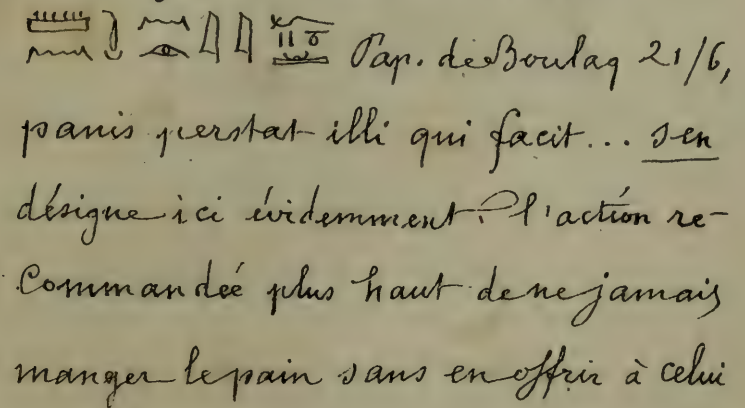 Pap. de Boulaq 21/6,
panis perstat illi qui facit... sen
désigne ici évidemment l'action re-
commandée plus haut de ne jamais
manger le pain sans en offrir à celui